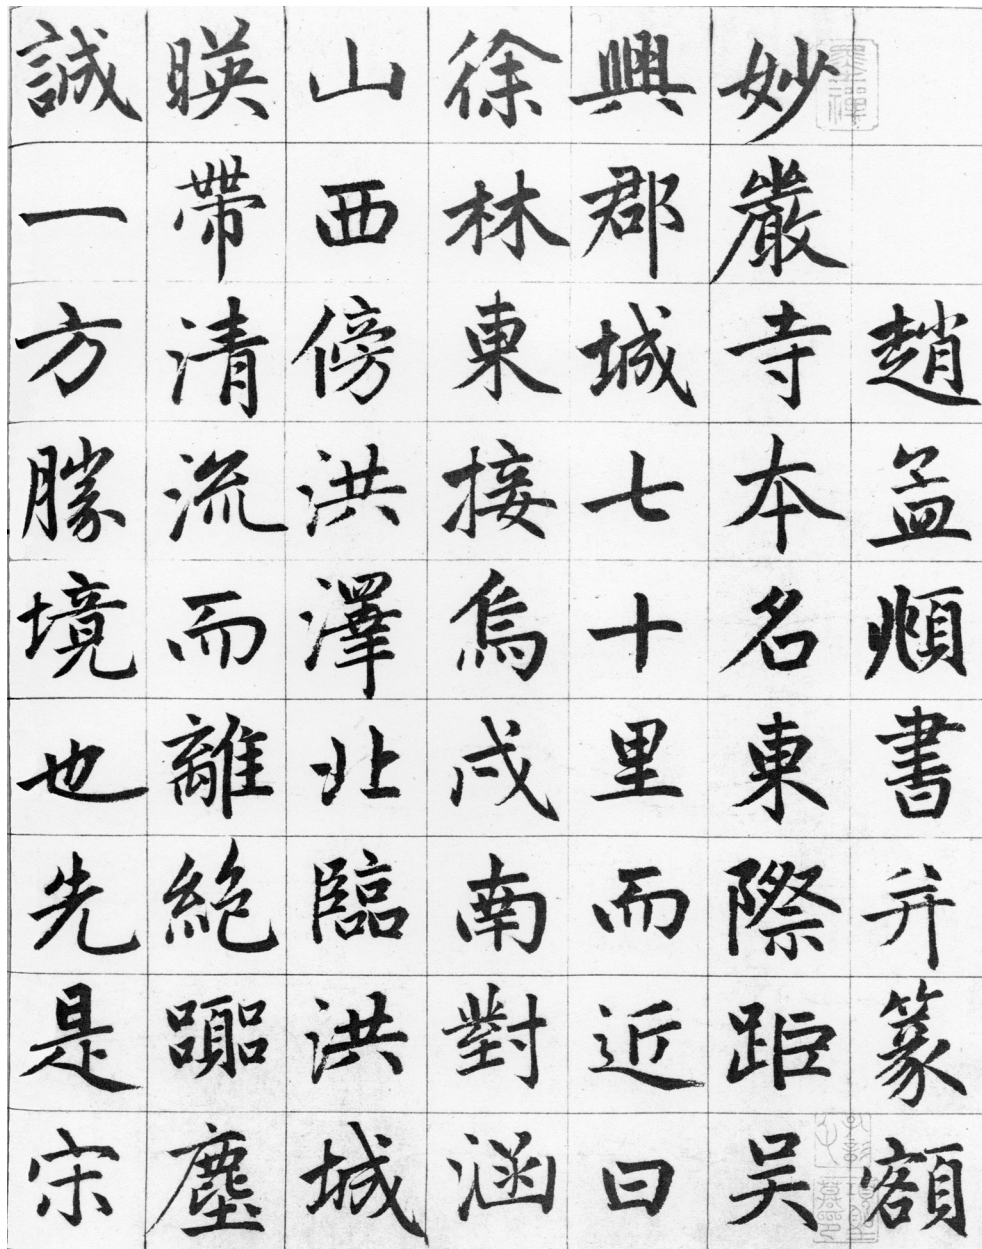 趙孟頫書并篆額
妙嚴寺本名東際距吳
興郡城七十里而近曰
徐林東接烏戍南對涵
山西傍洪澤北臨洪城
暎帶清流而離絕囂塵
誠一方勝境也先是宋